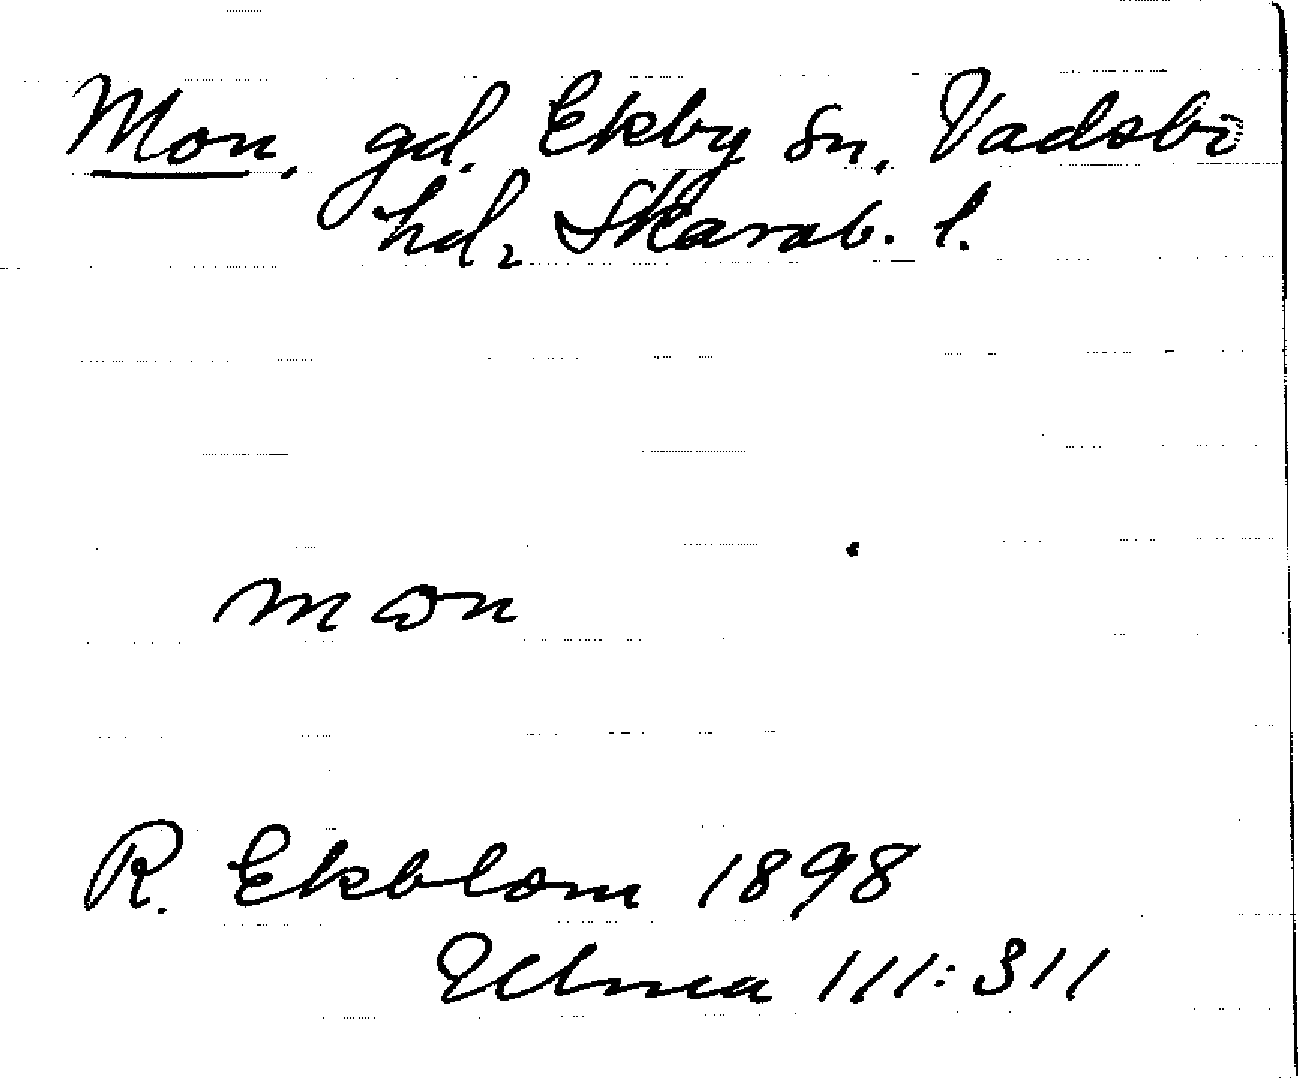 Mon, gd. Ekby sn, Vadsbo
hd, Skarab. l.
mɷn
R. Ekblom 1898
Ulma 111:311